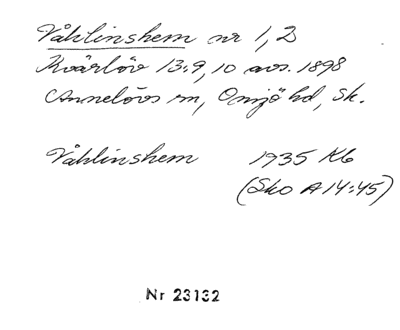 Våhlinshem nr 1,2
Kvärlöv 13:9,10 avs. 1898
Annelövs sn, Onsjö hd, Sk.
Våhlinshem 1935 Kb
(Sko A 14:45)
Nr 23132